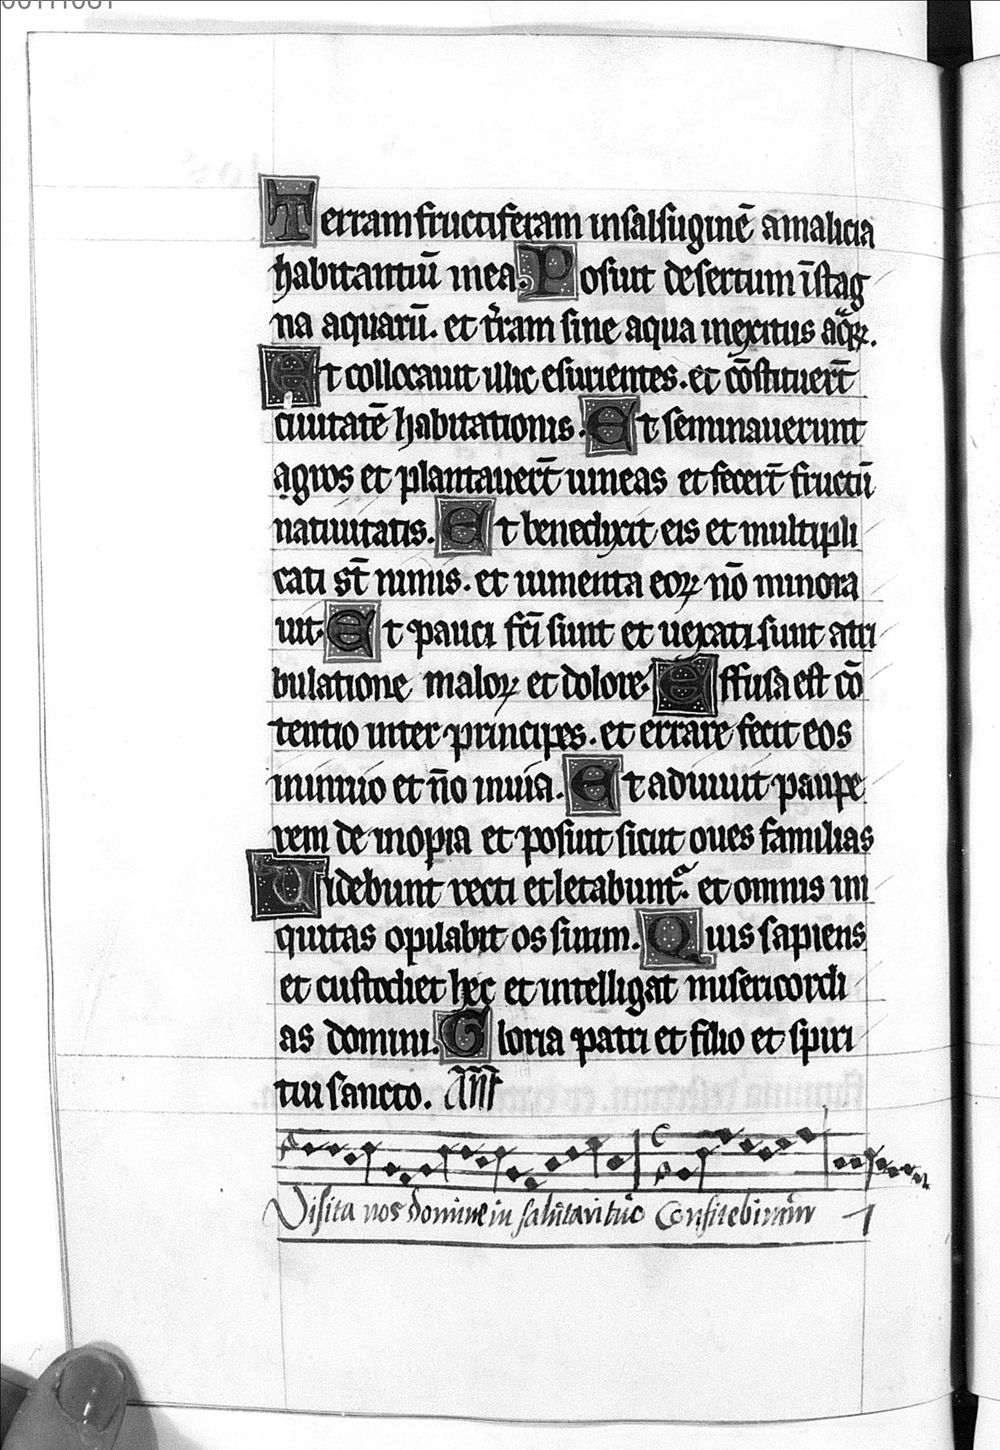 00111081
Terram fructiferam in salsuginē a malicia
habitantiū in ea. Posuit desertum ī stag
na aquarū. et t̄ram sine aqua in exitus aq̄ꝝ.
Et collocauit illic esurientes. et cōstituerūt̄
ciuitatē habitationis. Et seminauerunt
agros et plantauer̄t uineas et fecer̄t fructū
natiuitatis. Et benedixit eis et multipli
cati st̄ nimis. et iumenta eoꝝ nō minora
uit. Et pauci fc̄i sunt et uexati sunt a tri
bulatione maloꝝ et dolore. Effusa est cō
tentio inter principes. et errare fecit eos
in inuio et nō in uia. Et adiuuit paupe
rem de inopia et posuit sicut oues familias
Videbunt recti et letabunt᷑. et omnis ini
quitas opilabit os suum. Quis sapiens
et custodiet hec et intelliget misericordi
as domini. Gloria patri et filio et spiri
tui sancto. Añ
Visita nos domine in salutari tuo Confitebimini